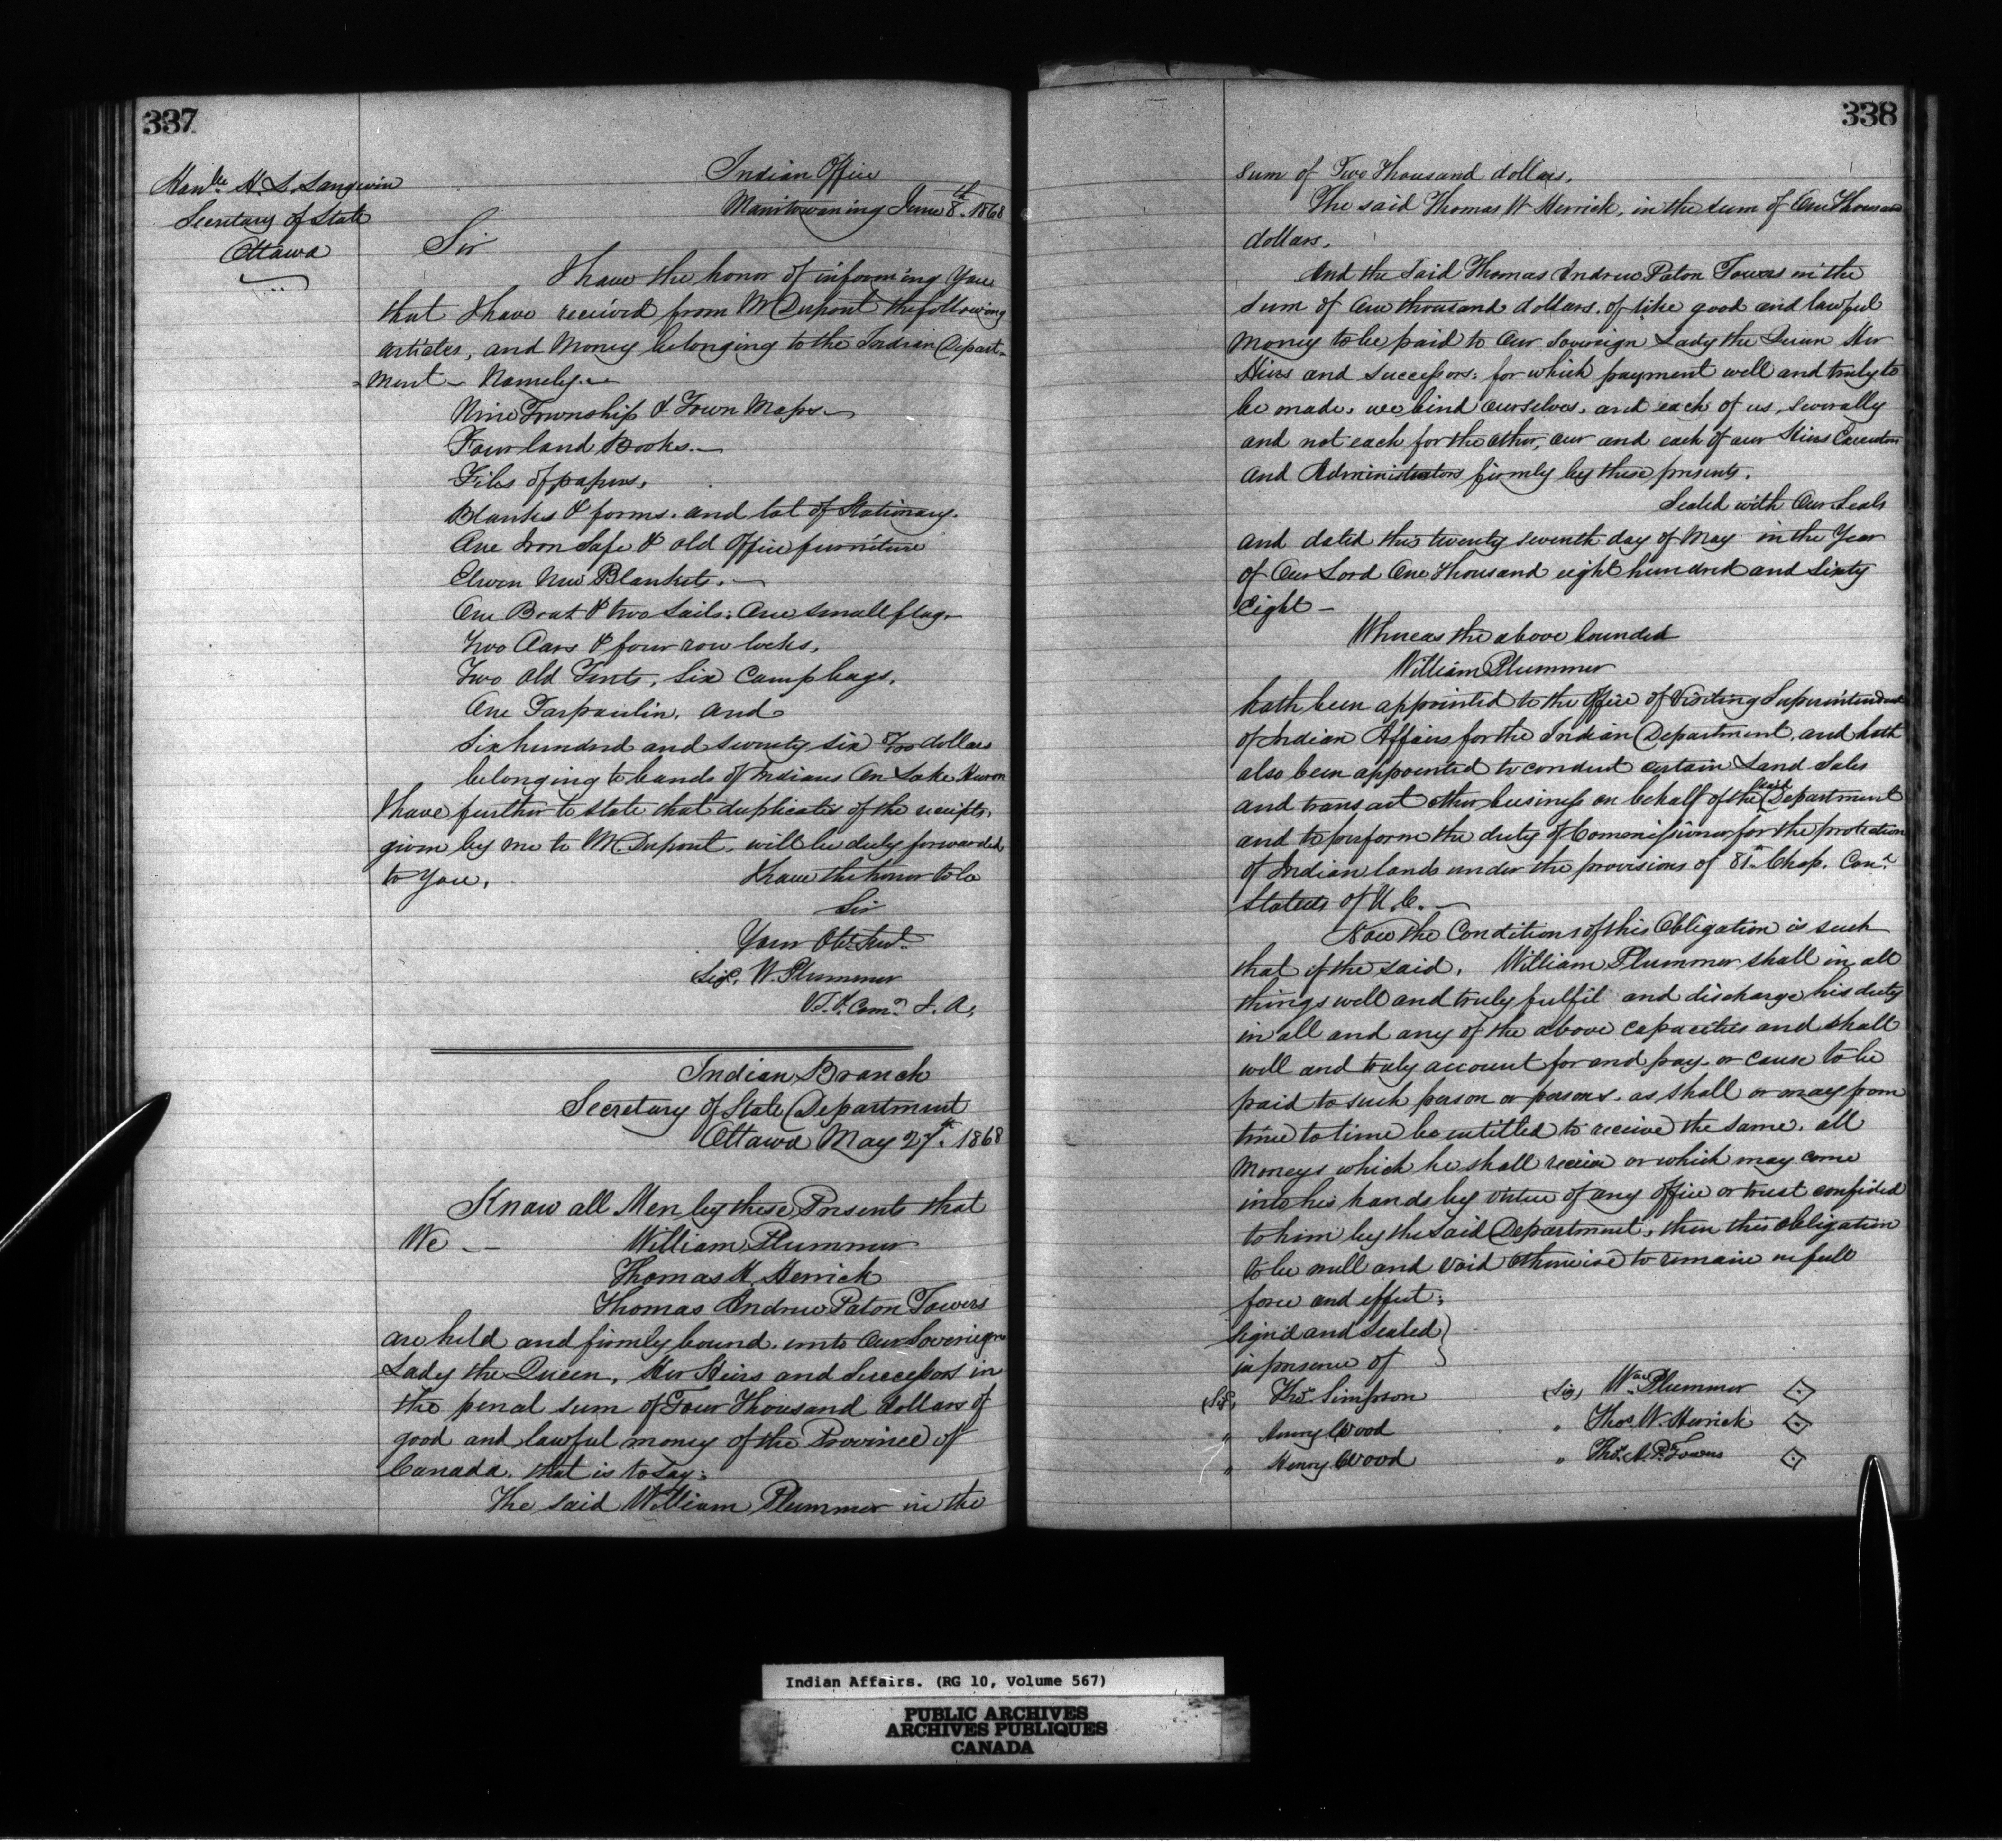 337
Hon^ble H. L. Langevin
Secretary of State
Ottawa
Indian Office
Manitowaning June 8^th 1868
Sir
I have the honor of informing You
that I have received from Mr Dupont the following
articles, and Money belonging to the Indian Depart-
-ment - Namely -
Nine Township & Town Maps -
Four land Books -
Files of papers,
Blanks & forms and lot of Stationary.
One Iron Safe & old Office furniture
Eleven New Blankets. -
One Boat & two Sails; One small flag -
Two Oars & four row locks,
Two Old Tents, Six Camp bags,
One Tarpaulin, and
Six hundred and seventy six dollars
belonging to bands of Indians On Lake Huron
I have further to state that duplicates of the receipts,
given by me to Mr Dupont, will be duly forwarded
to You,
I have the honor to be
Sir
Your Obt Servt
Sigd, W. Plummer
V.S. & Comr I. A,
Indian Branch
Secretary of State Department
Ottawa May 27^th 1868
Know all Men by these Presents that
We - - William Plummer
Thomas W. Herrick
Thomas Andrew Paton Towers
are held and firmly bound unto Our Soveriegn
Lady the Queen, Her Heirs and Successors in
the penal sum of Four Thousand dollars of
good and lawful money of the Province of
Canada, that is to Say:
The said William Plummer in the
338
Sum of Two Thousand dollars.
The said Thomas W Herrick, in the sum of One Thousand
dollars,
And the Said Thomas Andrew Paton Towers in the
Sum of One thousand dollars, of like good and lawful
Money to be paid to Our Sovereign Lady the Queen Her
Heirs and Successors: for which payment well and truly to
be made, we bind Ourselves, and each of us, severally
and not each for the other, our and each of our Heirs Executors
and Administrators firmly by these presents.
Sealed with Our Seals
and dated this twenty seventh day of May in the Year
of Our Lord One Thousand eight hundred and Sixty
Eight -
Whereas the above bounded
William Plummer
hath been appointed to the Office of Visiting Superintendent
of Indian Affairs for the Indian Department, and hath
also been appointed to conduct certain Land Sales
and transact other business on behalf of the said Department
and to perform the duty of Commissioner for the protection
of Indian lands under the provisions of 81^st Chap. Con^d
Statutes of U.C. -
Now the Condition of this Obligation is such
that if the said, William Plummer shall in all
things well and truly fulfil and discharge his duty
in all and any of the above capacities and shall
well and truly account for and pay, or cause to be
paid to such person or persons, as shall or may from
time to time be entitled to receive the same, all
Moneys which he shall receive or which may come
into his hands by virtue of any office or trust confided
to him by the Said Department, then this obligation
to be null and void otherwise to remain in full
force and effect;
Sign'd and Sealed }
in presence of
(Sigd, Thos. Simpson (Sig) Wm Plummer
" Henry Wood " Thos. W. Herrick
" Henry Wood " Thos. A. P. Towers
Indian Affairs. (RG 10, Volume 567)
PUBLIC ARCHIVES
ARCHIVES PUBLIQUES
CANADA